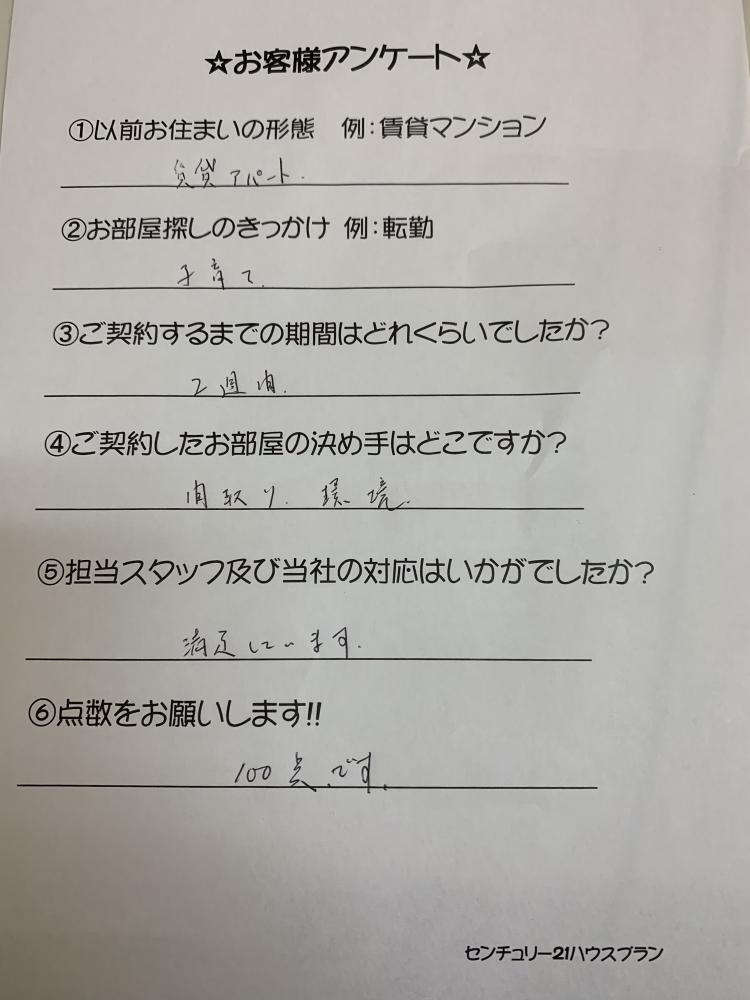 ☆お客様アンケート☆
①以前お住まいの形態　例：賃貸マンション
賃貸アパート.
②お部屋探しのきっかけ 例：転勤
子育て.
③ご契約するまでの期間はどれくらいでしたか？
2週間.
④ご契約したお部屋の決め手はどこですか？
間取り. 環境.
⑤担当スタッフ及び当社の対応はいかがでしたか？
満足しています.
⑥点数をお願いします!!
100点です.
センチュリー21ハウスプラン